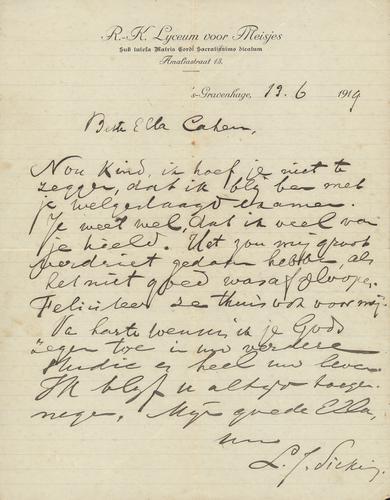 R.-K. Lyceum voor Meisjes
Sub tutela Matris Cordi Sacratissimo dicatum
Amaliastraat 13.
's-Gravenhage, 19. 6 1914
Beste Ella Cahen,
Nou kind, ik hoef je niet te
zeggen, dat ik blij ben met
je welgeslaagd examen.
Je weet wel, dat ik veel van
je hield. Het zou mij groot
verdriet gedaan hebben, als
het niet goed was afgeloopen.
Feliciteer ze thuis ook voor mij.
Van harte wensch ik je Gods
zegen toe in uw verdere
studie en heel uw leven.
Ik blijf u altijd toege-
negen, Mijn goede Ella,
uw
L. J. Sicking